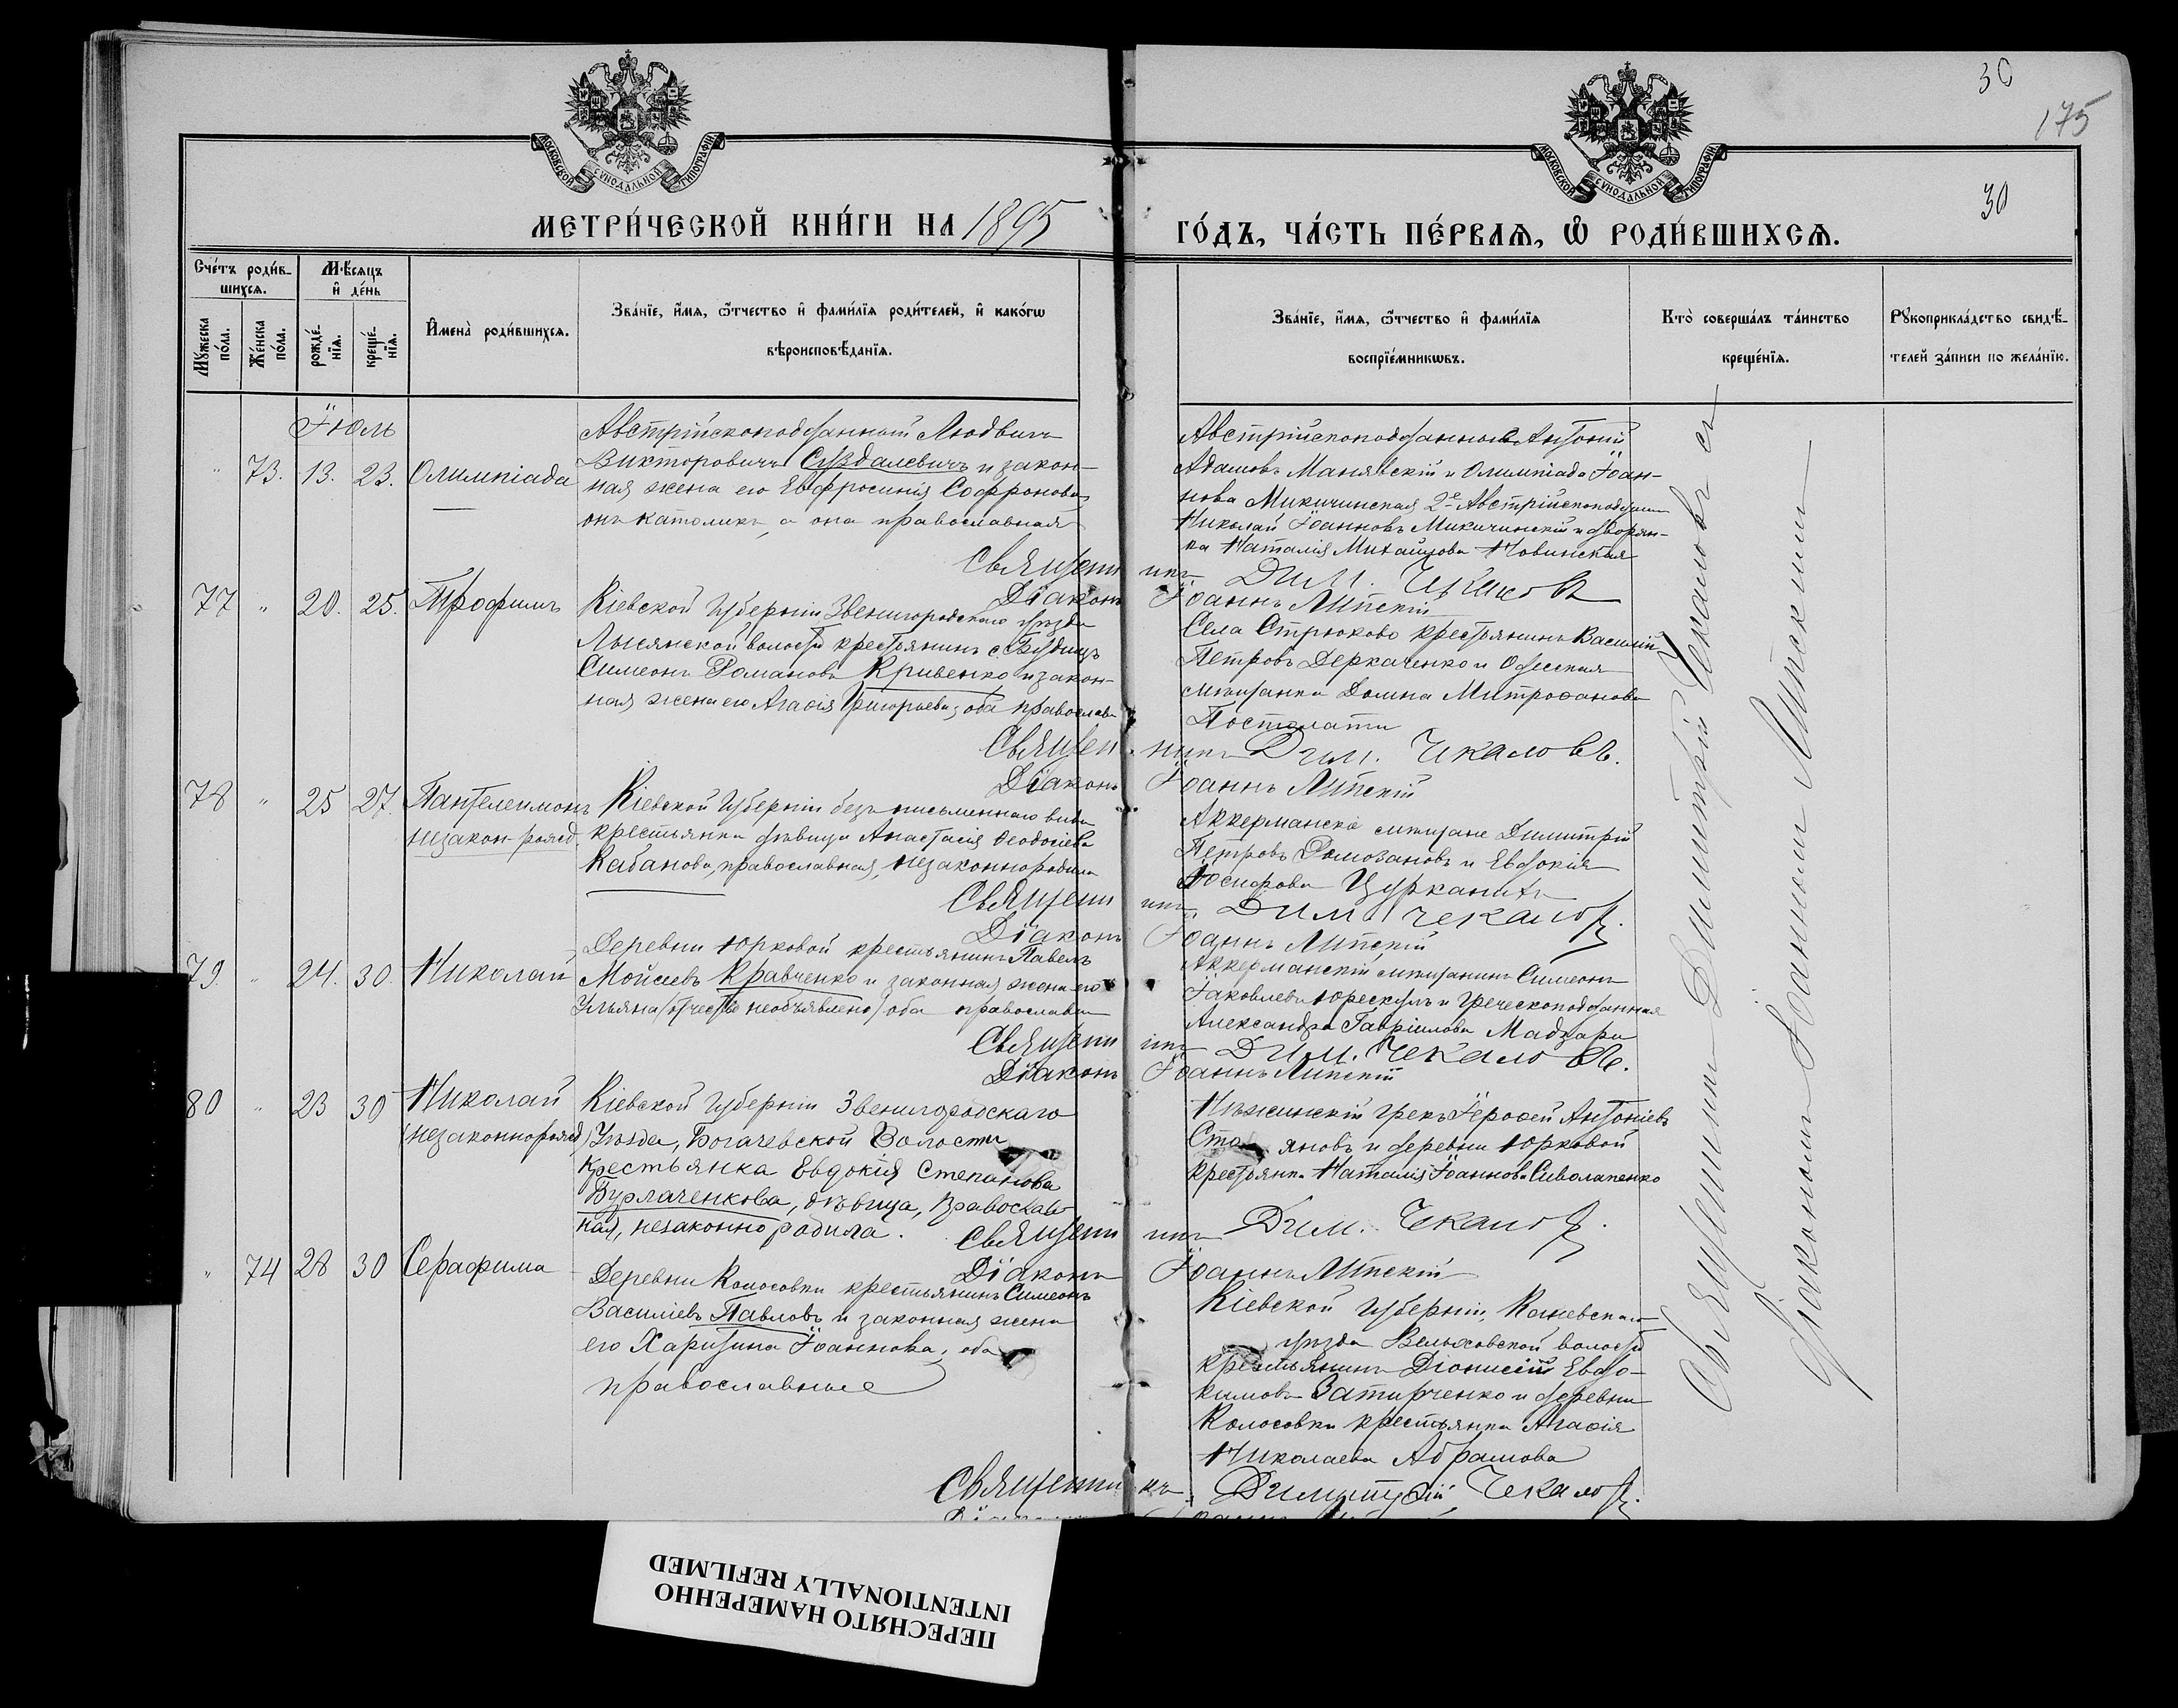 30
175
30
МОСКОВСКОЙ СѴНОДАЛЬНОЙ ТИПОГРАФІИ
МОСКОВСКОЙ СѴНОДАЛЬНОЙ ТИПОГРАФІИ
МЕТРИ́ЧЕСКОЙ КНИ́ГИ НА 1895 ГО́ДЪ, ЧА́СТЬ ПЕ́РВАѦ, Ѡ РОДИ́ВШИХСѦ.
Сче́тъ роди́в-
шихсѧ.
Мѣ́сѧцъ
и҆ де́нь
Мꙋ́жеска по́ла.
Же́нска по́ла.
рожде́-нїѧ.
креще́-нїѧ.
И҆мена̀ роди́вшихсѧ.
Зва́нїе, и҆́мѧ, ѻ҆́тчество и҆ фами́лїѧ роди́телей, и҆ како́гѡ
вѣроисповѣ́данїѧ.
Зва́нїе, и҆́мѧ, ѻ҆́тчество и҆ фами́лїѧ
воспрїе́мникѡвъ.
Кто̀ соверша́лъ та́инство
креще́нїѧ.
Рꙋкоприкла́дство свидѣ́-
телей за́писи по жела́нїю.
Іюль
" 73. 13. 23. Олимпіада
Австрійскоподданный Людвигъ
Викторовичъ Суздалевичъ и закон-
ная жена его Евфросинія Софронова,
онъ католикъ, а она православная
Австрійскоподданные Антоній
Адамовъ Манявскій и Олимпіада Іоан-
нова Микичинская 2е Австрійскоподдан
Николай Іоанновъ Микичинскій и дворян-
ка Наталія Михайлова Новинская
Священникъ Дим. Чекаловъ
Діаконъ Іоаннъ Липскій
77 " 20. 25. Трофимъ
Кіевской Губерніи Звенигородскаго уѣзда
Лысянской волости крестьянинъ с. Будищъ
Симеонъ Романовъ Кривенко и закон-
ная жена его Агаѳія Григорьева, оба православ
Села Стрюково крестьянинъ Василій
Петровъ Деркаченко и Одесская
мѣщанка Домна Митрофанова
Постолати
Священникъ Дим. Чекаловъ.
Діаконъ Іоаннъ Липскій
78 " 25 27. Пантелеимонъ
незакон-рожд.
Кіевской Губерніи безъ письменнаго вида
крестьянка дѣвица Анастасія Ѳеодосіева
Кабанова, православная, незаконно родила
Аккерманскіе мѣщане Димитрій
Петровъ Ромозановъ и Евдокія
Іосифова Цурканъ
Священникъ Дим Чекаловъ.
Діаконъ Іоаннъ Липскій
79. " 24. 30. Николай
Деревни Юрковой крестьянинъ Павелъ
Мойсеевъ Кравченко и законная жена его
Ульяна (отчество необъявлено) оба православн
Аккерманскій мѣщанинъ Симеонъ
Іаковлевъ Юрескулъ и Греческоподданная
Александра Гавріилова Маджари
Священникъ Дим. Чекаловъ.
Діаконъ Іоаннъ Липскій
80 " 23 30 Николай
(незаконнорожд)
Кіевской Губерніи Звенигородскаго
Уѣзда, Богачевской Волости
крестьянка Евдокія Степанова
Бурлаченкова, дѣвица, православ-
ная, незаконно родила.
Нѣжинскій грекъ Іероѳей Антоніевъ
Стояновъ и деревни Юрковой
крестьянка Наталія Іоаннова Сиволапенко
Священникъ Дим. Чекаловъ.
Діаконъ Іоаннъ Липскій
" 74 28 30 Серафима
Деревни Колосовки крестьянинъ Симеонъ
Василіевъ Павловъ и законная жена
его Харитина Іоаннова, оба
православные
Кіевской Губерніи, Каневскаго
уѣзда Вельховской волости
крестьянинъ Діонисій Евдо-
кимовъ Затирченко и деревни
Колосовки крестьянка Агаѳія
Николаева Абрамова
Священникъ Димитрій Чекаловъ.
Священникъ Димитрій Чекаловъ съ
діакономъ Іоанномъ Липскимъ
ПЕРЕСНЯТО НАМЕРЕННО
INTENTIONALLY REFILMED